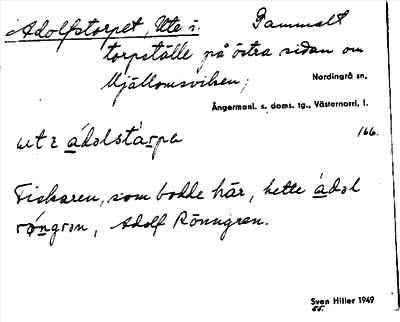 Adolfstorpet, Ute i. Gammalt
torpställe på östra sidan om
Mjällomsviken; Nordingrå sn,
Ångermanl. s. doms. tg., Västernorrl. l.
ut i ádalstàrpa 166.
Fiskaren, som bodde här, hette ádal
róngran, Adolf Rönngren.
Sven Hiller 1949